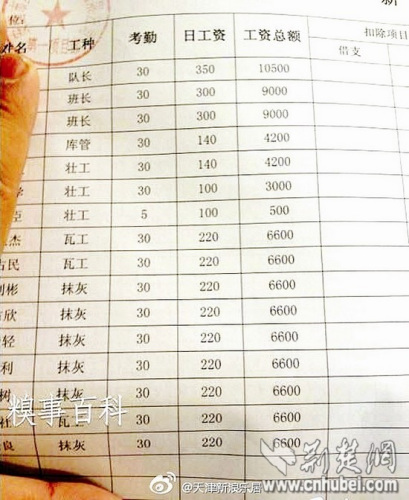 新
位
姓名 工种 考勤 日工资 工资总额 扣除项目
借支
队长 30 350 10500
班长 30 300 9000
班长 30 300 9000
库管 30 140 4200
壮工 30 140 4200
壮工 30 100 3000
臣 壮工 5 100 500
杰 瓦工 30 220 6600
民 瓦工 30 220 6600
彬 抹灰 30 220 6600
欣 抹灰 30 220 6600
轻 抹灰 30 220 6600
利 抹灰 30 220 6600
树 抹灰 30 220 6600
瓦工 30 220 6600
良 抹灰 30 220 6600
糗事百科
@天津新浪乐居
荆楚网
www.cnhubei.com